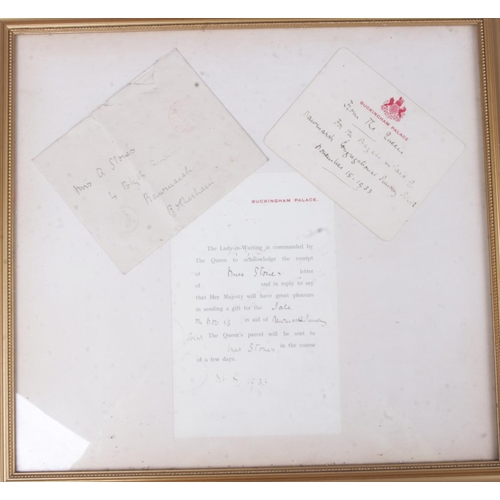 Miss A Stones
Rawmarsh
Rotherham
BUCKINGHAM PALACE
From The Queen
For the Bazaar in aid of
Rawmarsh Congregational Sunday School
November 15. 1933
BUCKINGHAM PALACE.
The Lady-in-Waiting is commanded by
The Queen to acknowledge the receipt
of Miss Stones letter
of and in reply to say
that Her Majesty will have great pleasure
in sending a gift for the Sale
on Nov 15 in aid of Rawmarsh Sunday
The Queen's parcel will be sent to
Miss Stones in the course
of a few days.
1933